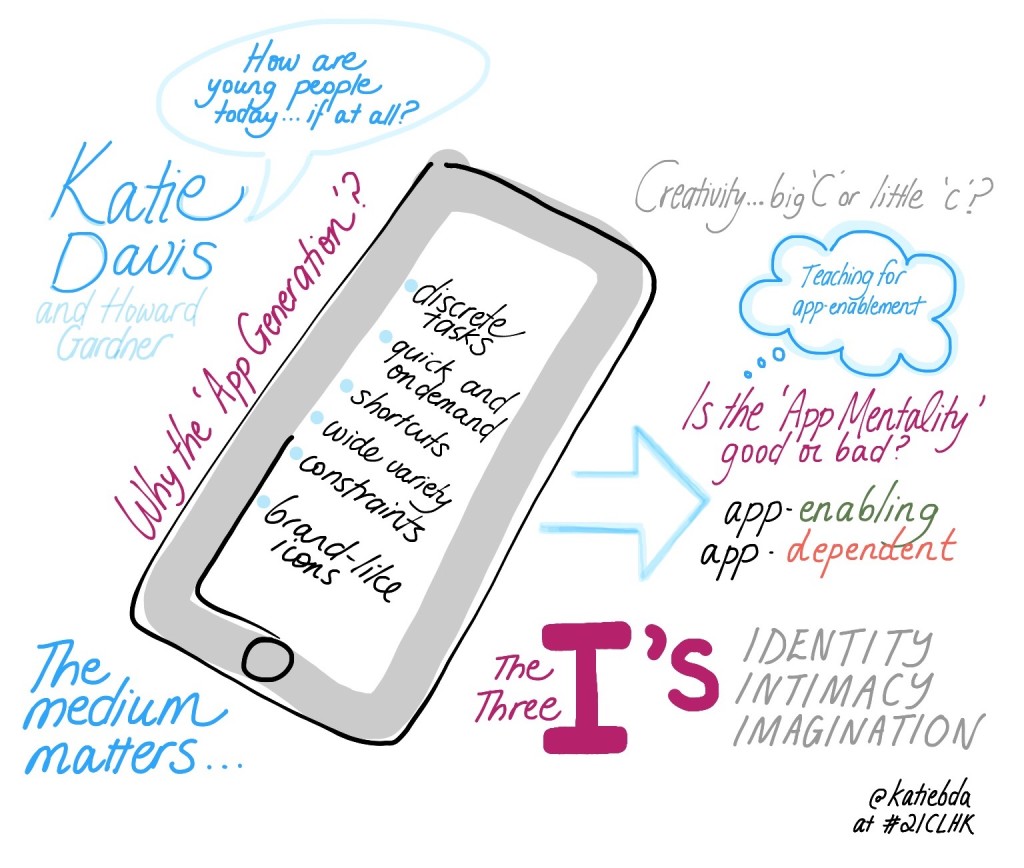 How are
young people
today... if at all?
Katie
Davis
and Howard
Gardner
Why the 'App Generation'?
discrete
tasks
quick and
on demand
shortcuts
wide variety
constraints
brand-like
icons
Creativity... big 'C' or little 'c'?
Teaching for
app-enablement
Is the 'App Mentality'
good or bad?
app-enabling
app-dependent
The medium
matters...
The
Three
I's
IDENTITY
INTIMACY
IMAGINATION
@katiebda
at #21CLHK